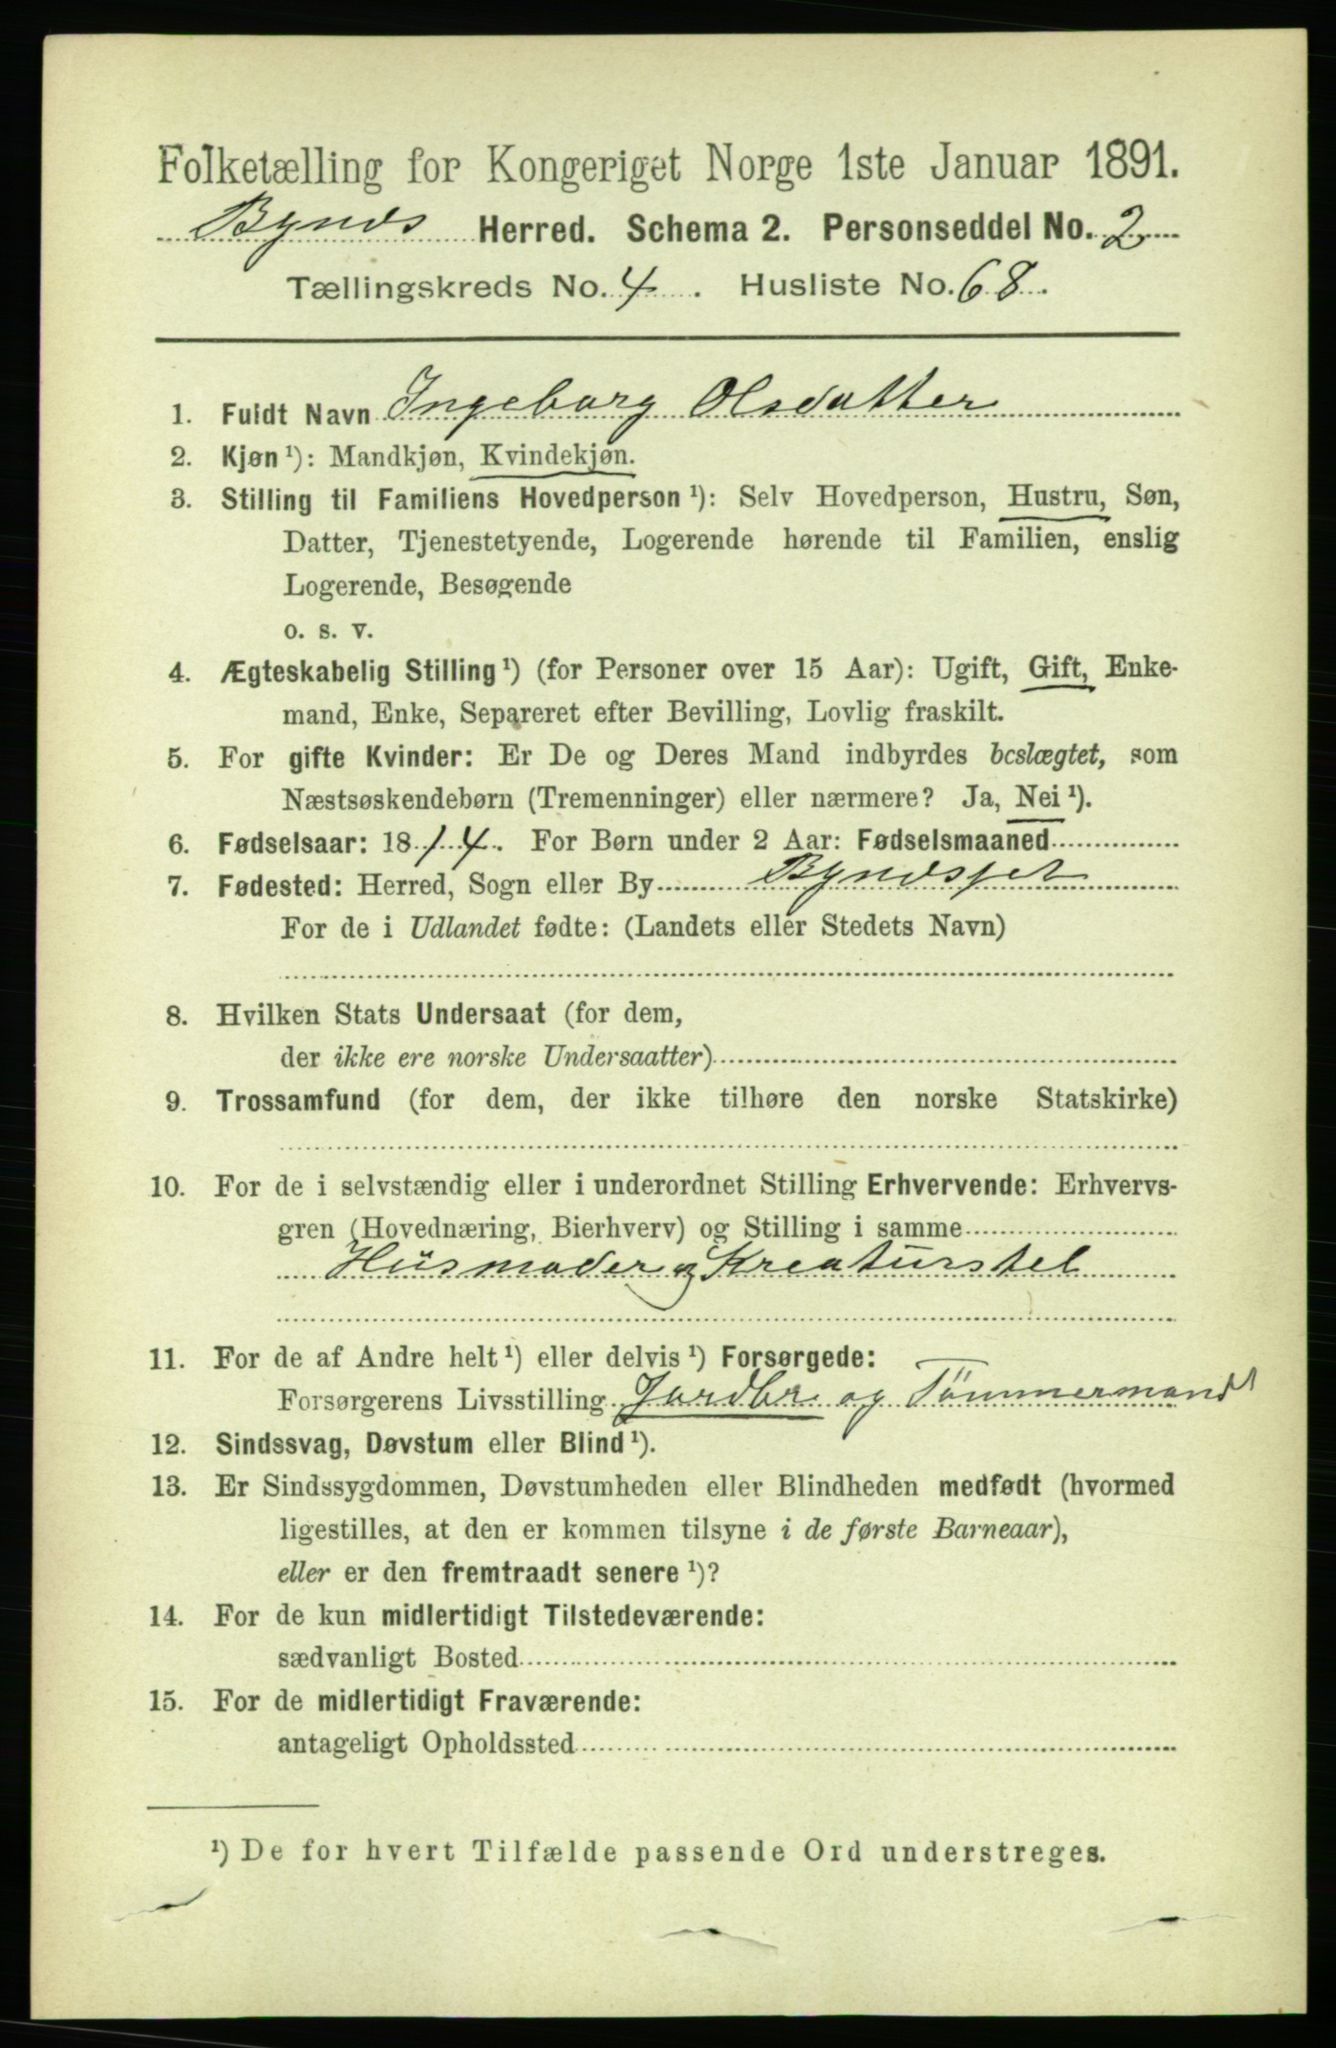 Folketælling for Kongeriget Norge 1ste Januar 1891.
Bynds Herred. Schema 2. Personseddel No. 2
Tællingskreds No. 4. Husliste No. 68.
1. Fuldt Navn Ingeborg Olsdatter
2. Kjøn ¹): Mandkjøn, Kvindekjøn.
3. Stilling til Familiens Hovedperson ¹): Selv Hovedperson, Hustru, Søn,
Datter, Tjenestetyende, Logerende hørende til Familien, enslig
Logerende, Besøgende
o. s. v.
4. Ægteskabelig Stilling ¹) (for Personer over 15 Aar): Ugift, Gift, Enke-
mand, Enke, Separeret efter Bevilling, Lovlig fraskilt.
5. For gifte Kvinder: Er De og Deres Mand indbyrdes beslægtet, som
Næstsøskendebørn (Tremenninger) eller nærmere? Ja, Nei ¹).
6. Fødselsaar: 1814. For Børn under 2 Aar: Fødselsmaaned
7. Fødested: Herred, Sogn eller By Byndsset
For de i Udlandet fødte: (Landets eller Stedets Navn)
8. Hvilken Stats Undersaat (for dem,
der ikke ere norske Undersaatter)
9. Trossamfund (for dem, der ikke tilhøre den norske Statskirke)
10. For de i selvstændig eller i underordnet Stilling Erhvervende: Erhvervs-
gren (Hovednæring, Bierhverv) og Stilling i samme
Husmoder og Kreaturstel
11. For de af Andre helt ¹) eller delvis ¹) Forsørgede:
Forsørgerens Livsstilling Jordbr og Tömmermand
12. Sindssvag, Døvstum eller Blind ¹).
13. Er Sindssygdommen, Døvstumheden eller Blindheden medfødt (hvormed
ligestilles, at den er kommen tilsyne i de første Barneaar),
eller er den fremtraadt senere ¹)?
14. For de kun midlertidigt Tilstedeværende:
sædvanligt Bosted
15. For de midlertidigt Fraværende:
antageligt Opholdssted
¹) De for hvert Tilfælde passende Ord understreges.